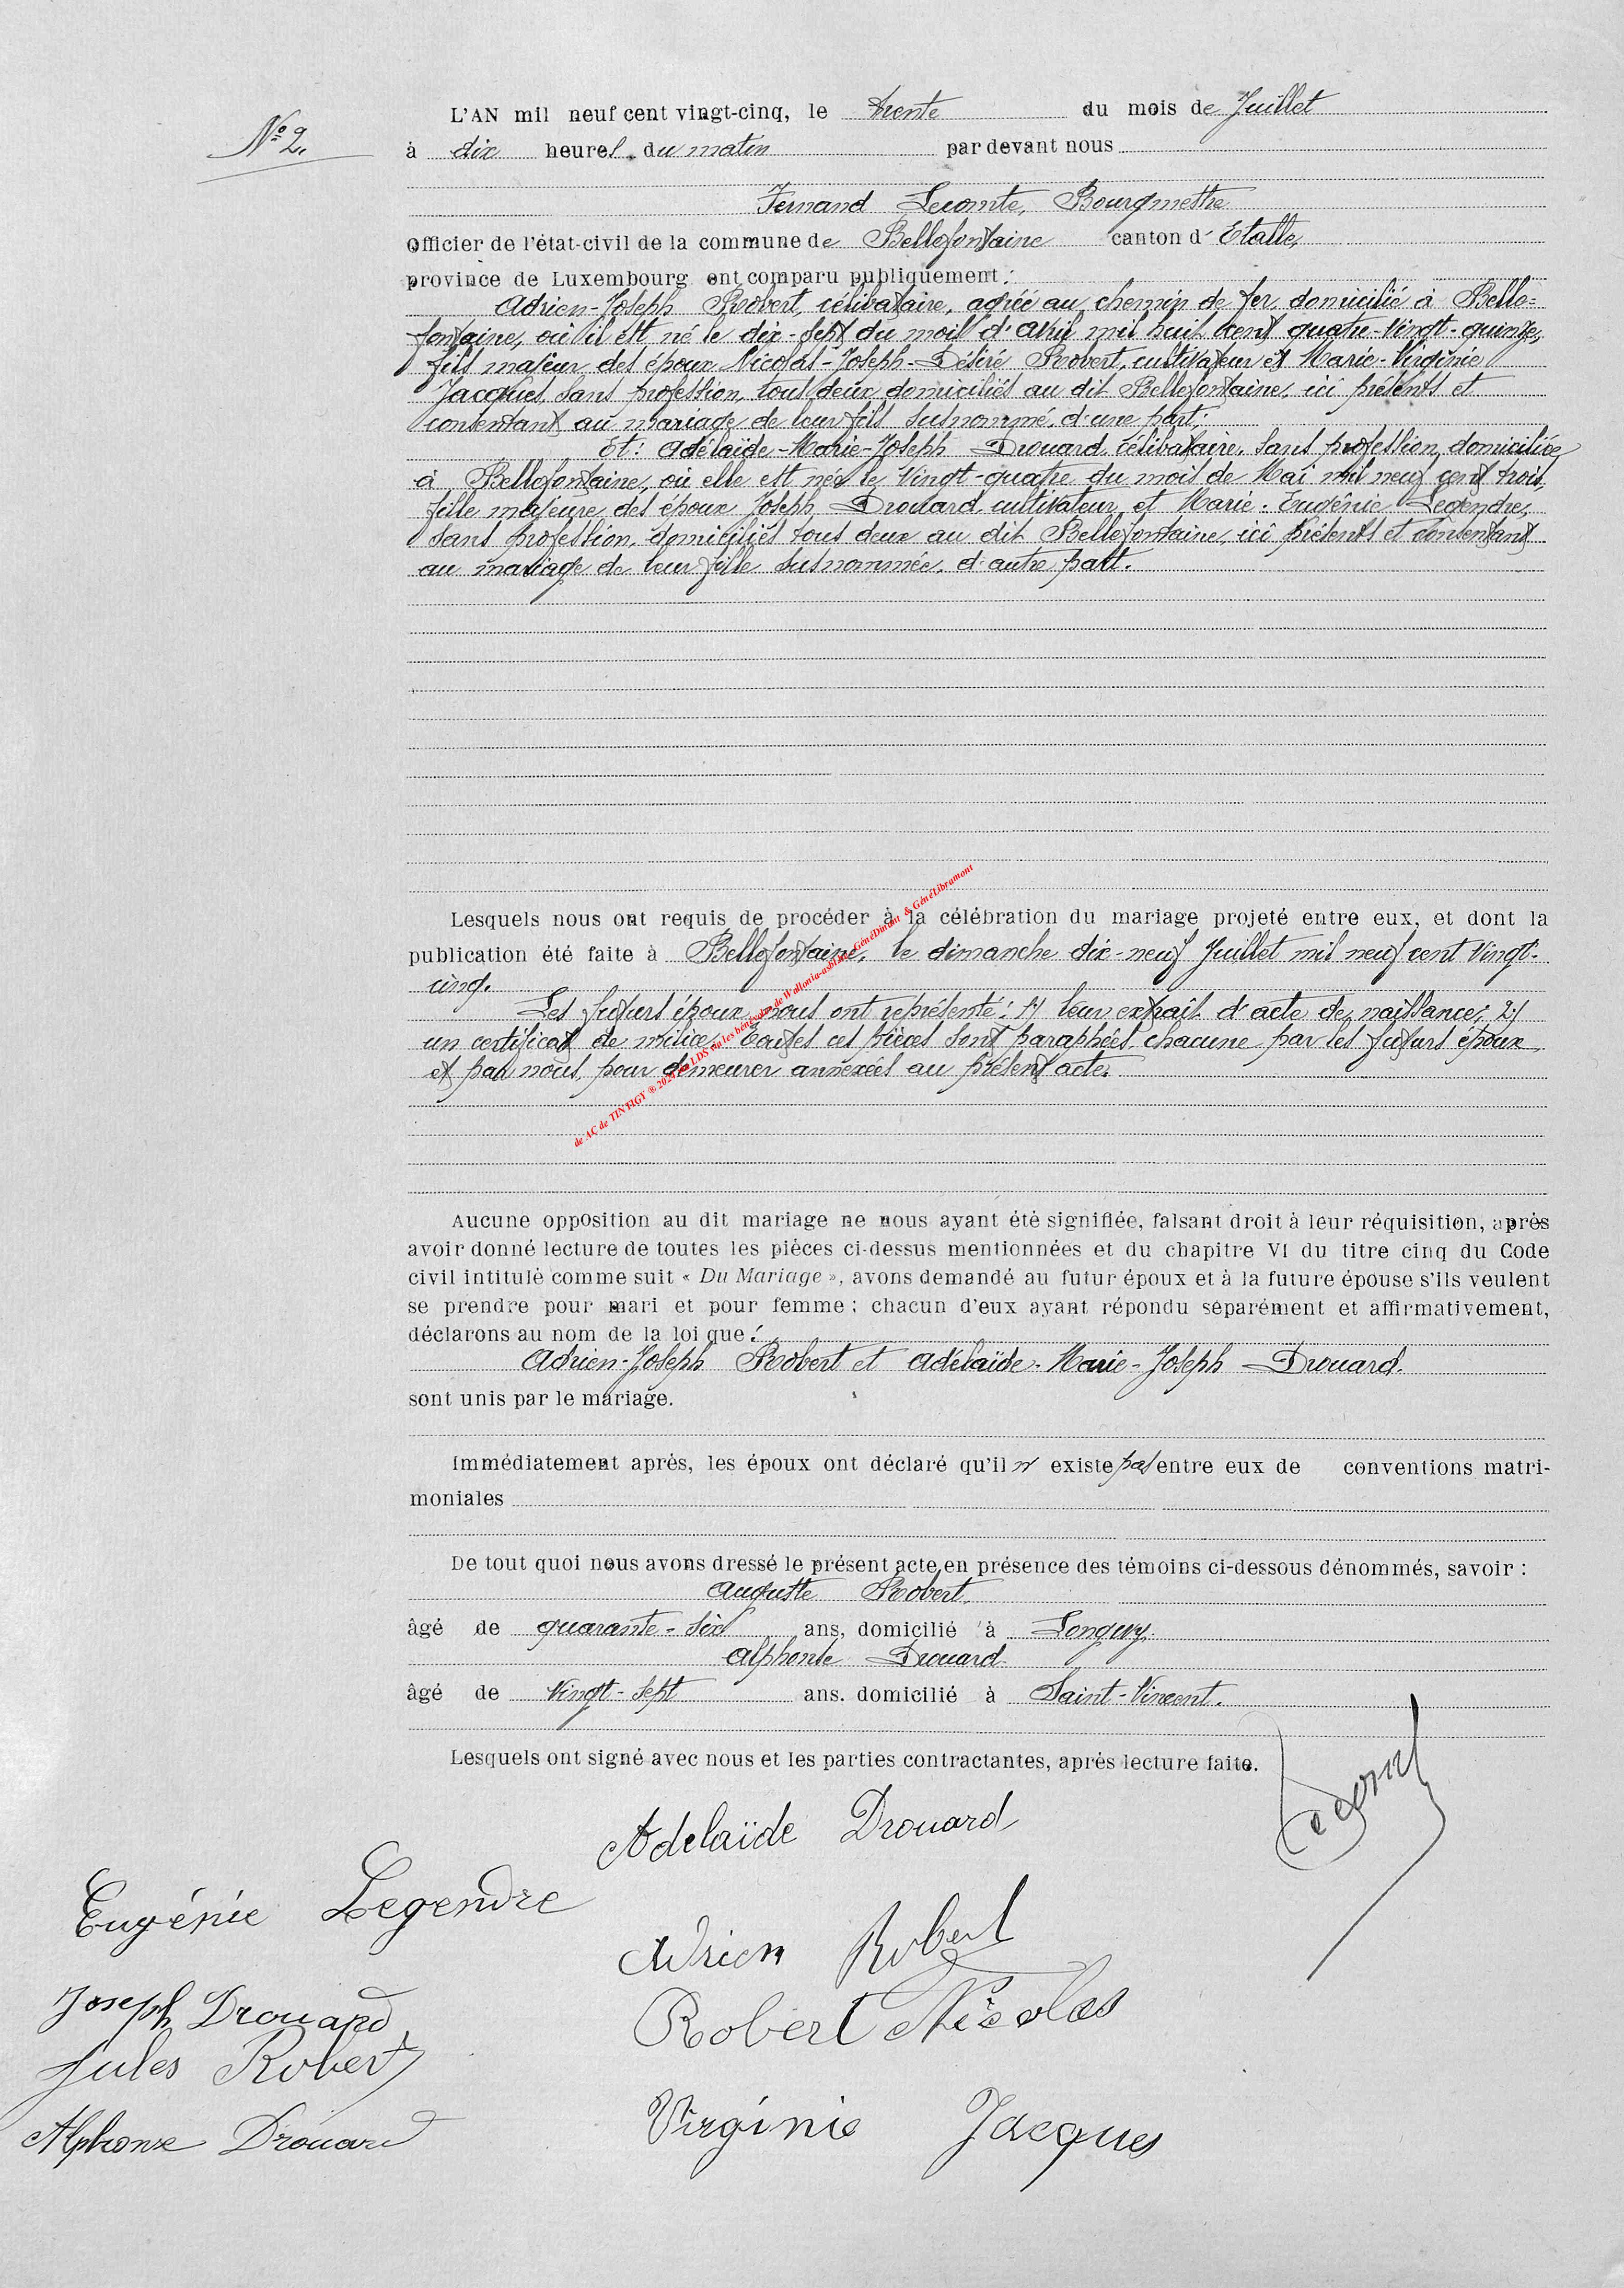 N° 2.
L'AN mil neuf cent vingt-cinq, le trente du mois de Juillet
à dix heures du matin par devant nous
Fernand Lecomte, Bourgmestre
Officier de l'état-civil de la commune de Bellefontaine canton d'Etalle,
province de Luxembourg ont comparu publiquement :
Adrien-Joseph Robert, célibataire, agréé au chemin de fer, domicilié à Belle=
fontaine, où il est né le dix-sept du mois d'avril mil huit cent quatre-vingt-quinze,
fils majeur des époux Nicolas-Joseph-Désiré Robert, cultivateur et Marie-Virginie
Jacques, sans profession, tous deux domiciliés au dit Bellefontaine, ici présents et
consentants au mariage de leur fils susnommé, d'une part;
et: Adélaïde-Marie-Joseph Drouard, célibataire, sans profession, domiciliée
à Bellefontaine, où elle est née le vingt-quatre du mois de Mai mil neuf cent trois,
fille majeure des époux Joseph Drouard, cultivateur et Marie-Eugénie Legendre,
sans profession, domiciliés tous deux au dit Bellefontaine, ici présents et consentants
au mariage de leur fille susnommée, d'autre part.
Lesquels nous ont requis de procéder à la célébration du mariage projeté entre eux, et dont la
publication été faite à Bellefontaine, le dimanche dix-neuf Juillet mil neuf cent vingt-
cinq.
Les futurs époux nous ont représenté: 1) leur extrait d'acte de naissance; 2)
un certificat de milice. Toutes ces pièces sont paraphées chacune par les futurs époux
et par nous, pour demeurer annexées au présent acte.
de AC de TINTIGY ® 2024 LDS les bénévoles de Wallonia-asbl GénéDinant & GénéLibramont
Aucune opposition au dit mariage ne nous ayant été signifiée, faisant droit à leur réquisition, après
avoir donné lecture de toutes les pièces ci-dessus mentionnées et du chapitre VI du titre cinq du Code
civil intitulé comme suit « Du Mariage », avons demandé au futur époux et à la future épouse s'ils veulent
se prendre pour mari et pour femme ; chacun d'eux ayant répondu séparément et affirmativement,
déclarons au nom de la loi que :
Adrien-Joseph Robert et Adélaïde-Marie-Joseph Drouard.
sont unis par le mariage.
Immédiatement après, les époux ont déclaré qu'il n' existe pas entre eux de conventions matri-
moniales
De tout quoi nous avons dressé le présent acte en présence des témoins ci-dessous dénommés, savoir :
Auguste Robert,
âgé de quarante-six ans, domicilié à Longwy.
Alphonse Drouard
âgé de vingt-sept ans. domicilié à Saint-Vincent.
Lesquels ont signé avec nous et les parties contractantes, après lecture faite.
Adelaïde Drouard
Eugénie Legendre
Adrien Robert
Joseph Drouard
Robert Nicolas
Jules Robert
Virginie Jacques
Alphonse Drouard